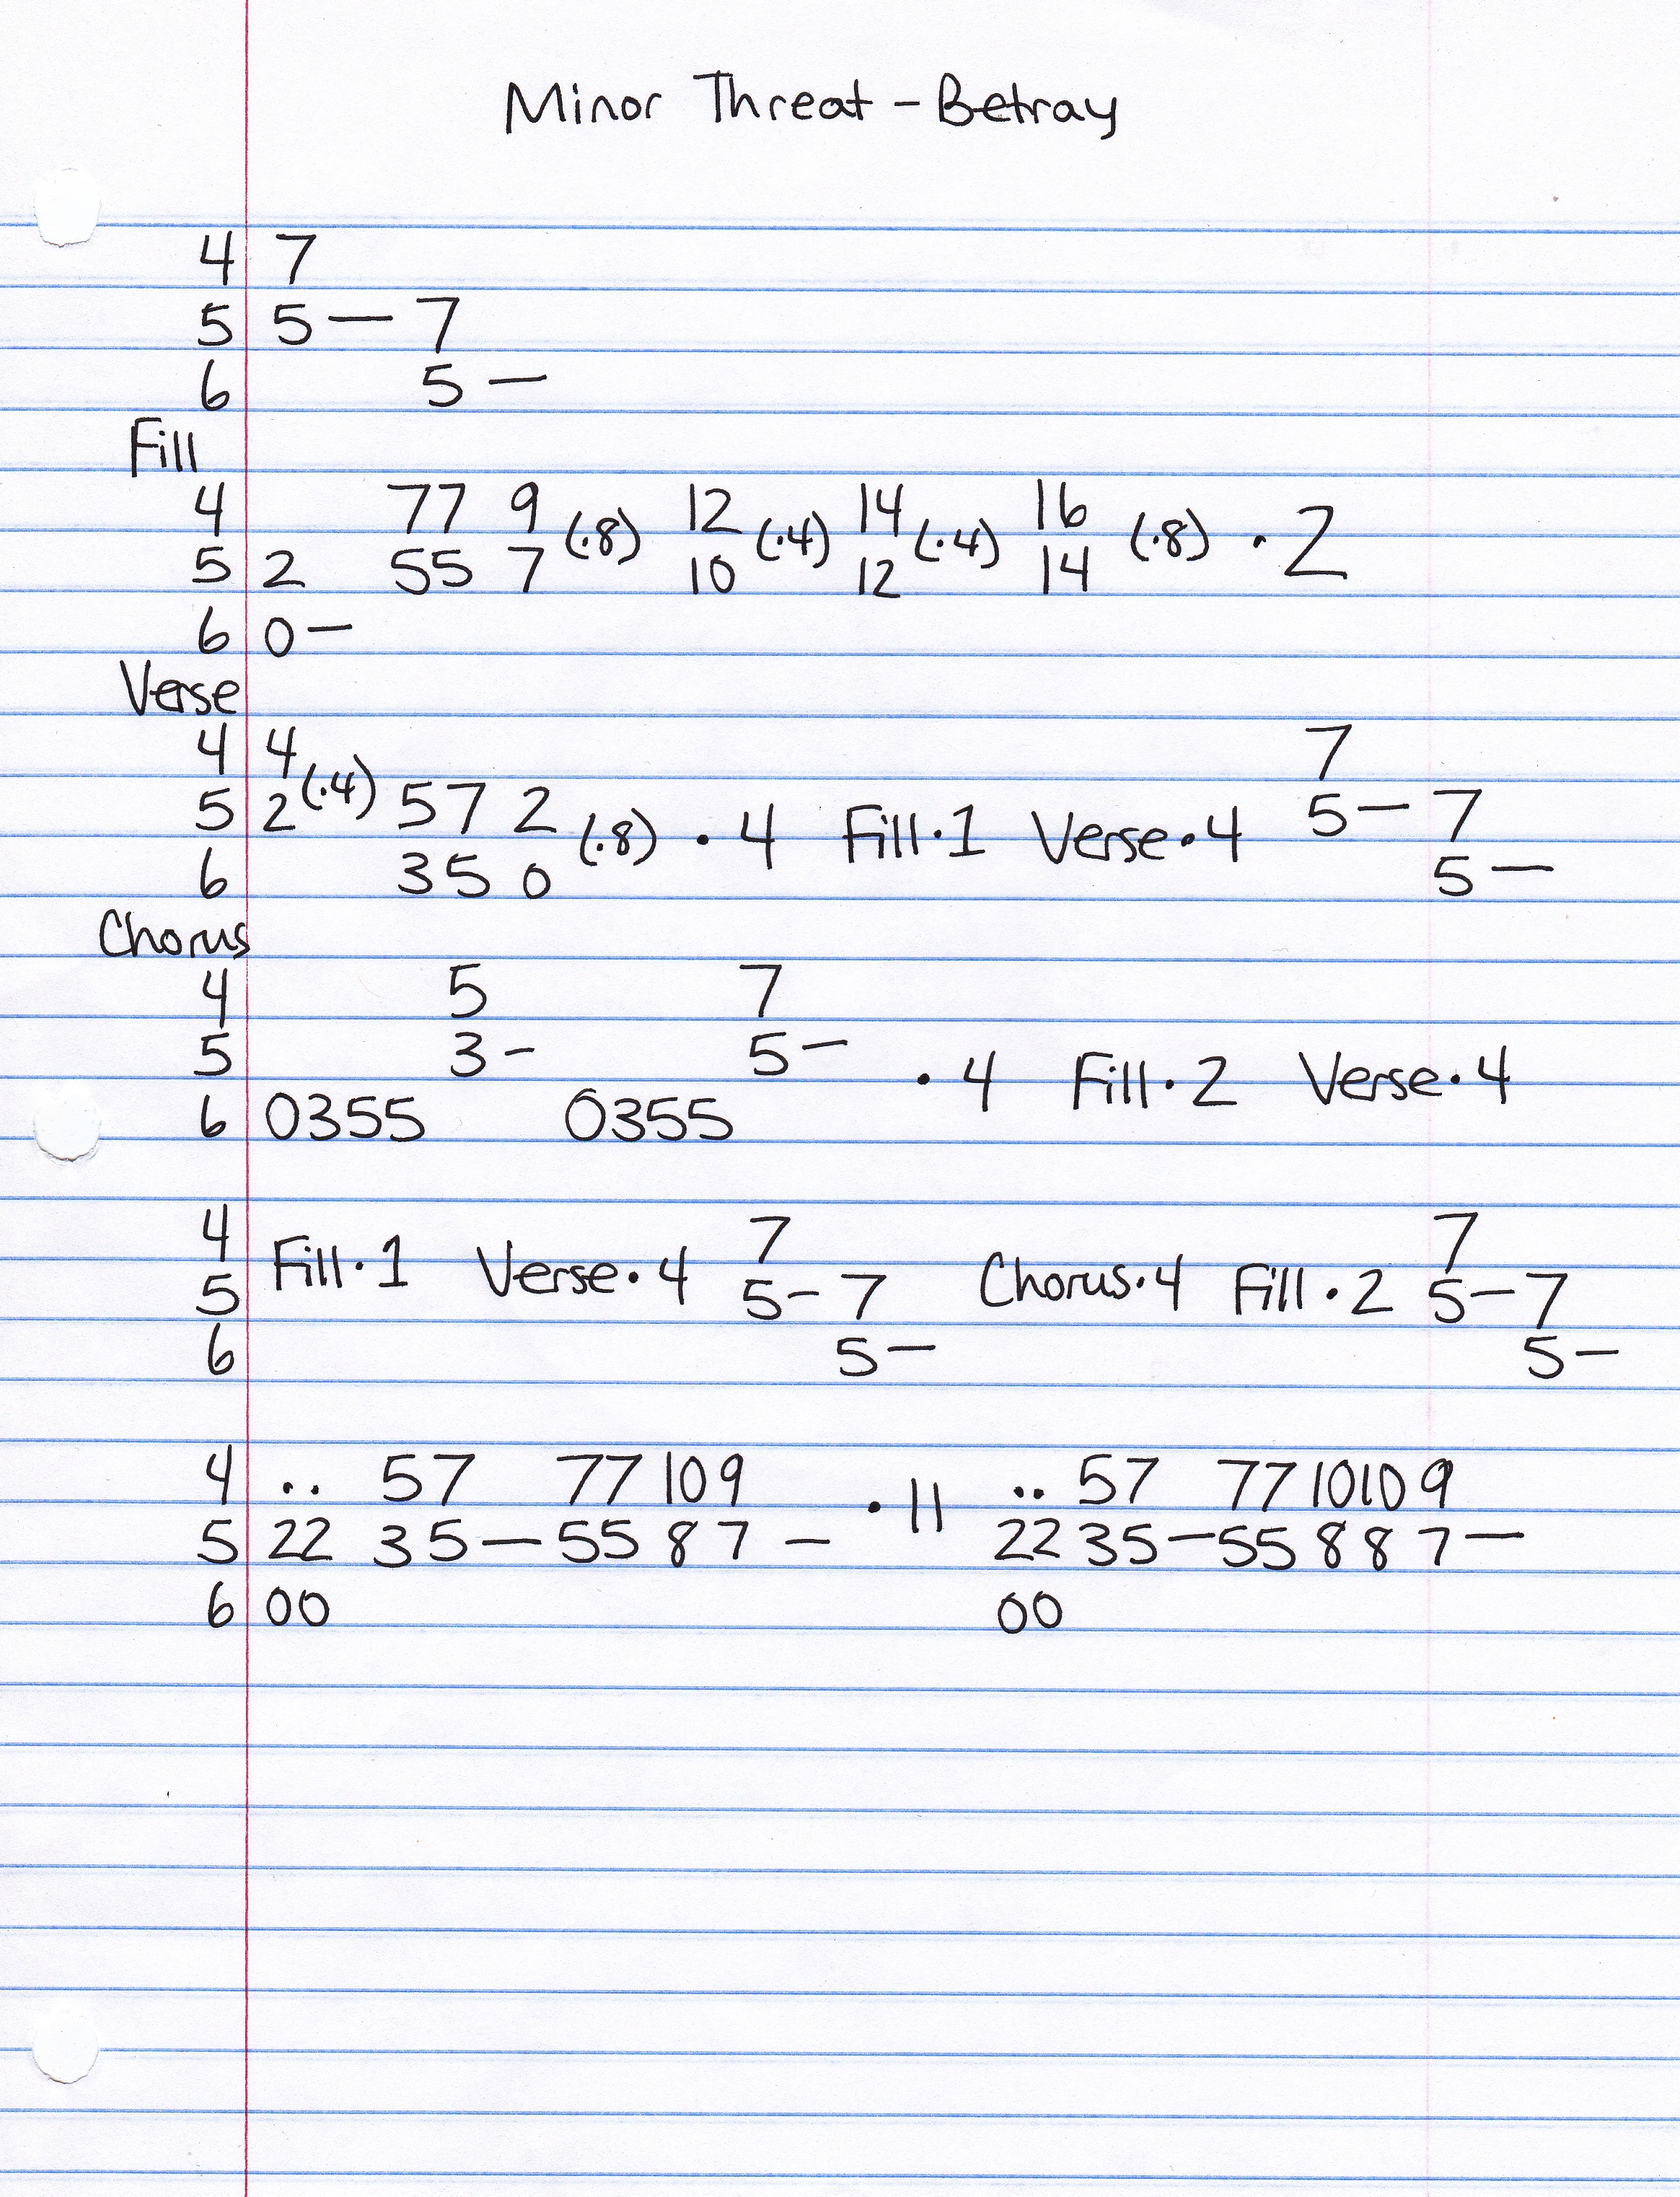 Minor Threat - Betray
4 7
5 5 — 7
6 5 —
Fill
4 77 9 (·8) 12 (·4) 14 (·4) 16 (·8) · 2
5 2 55 7 10 12 14
6 0 —
Verse
4 4 (·4) 7
5 2 57 2 (·8) · 4 Fill · 1 Verse · 4 5 — 7
6 35 0 5 —
Chorus
4 5 7
5 3 - 5 — · 4 Fill · 2 Verse · 4
6 0355 0355
4 Fill · 1 Verse · 4 7 Chorus · 4 Fill · 2 7
5 5 - 7 5 — 7
6 5 — 5 —
4 .. 57 77 10 9 · 11 .. 57 77 10 10 9
5 22 35 — 55 8 7 — 22 35 — 55 8 8 7 —
6 00 00